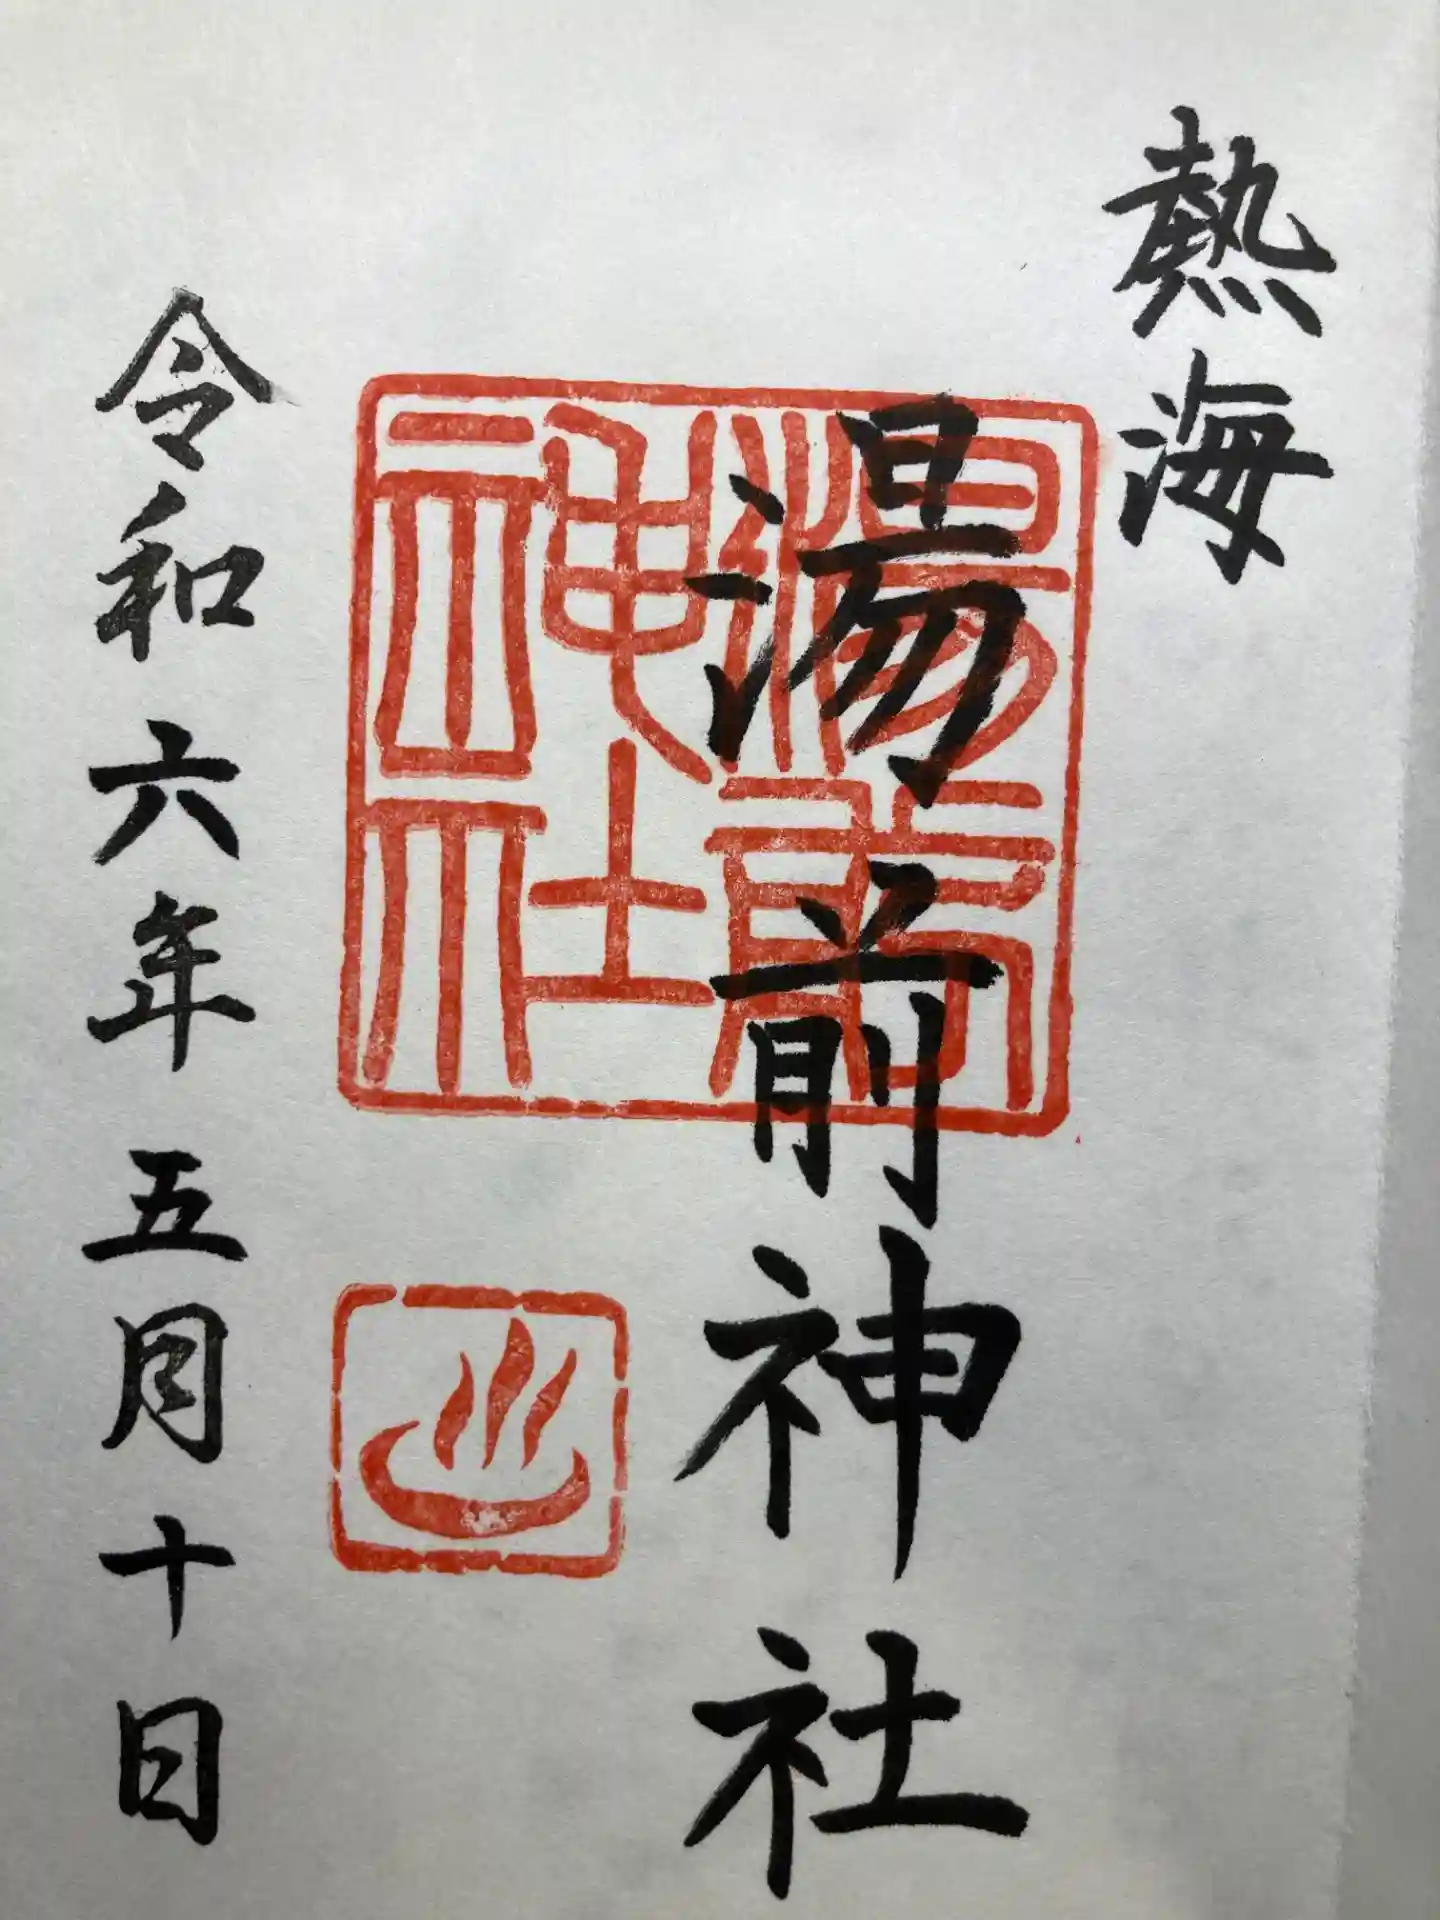 熱海
湯前神社
湯前
神社
令和六年五月十日